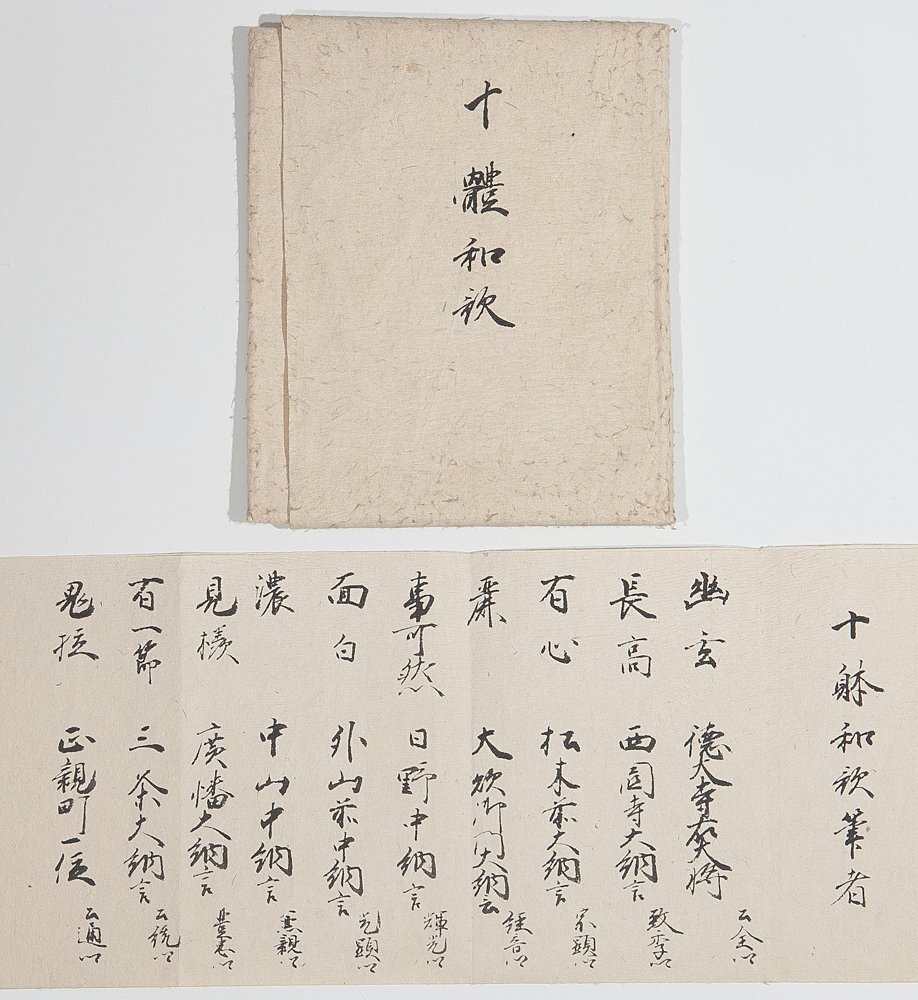 十體和歌
十躰和歌筆者
幽玄 德大寺右大将 公全卿
長高 西園寺大納言 致季卿
有心 松木前大納言 宗顕卿
麗 大炊御門大納言 経音卿
事可然 日野中納言 輝光卿
面白 外山前中納言 光顕卿
濃 中山中納言 兼親卿
見様 廣幡大納言 豊忠卿
有一節 三条大納言 公統卿
鬼拉 正親町一位 公通卿